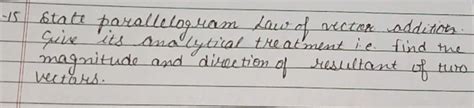 -15 State parallelogram Law of vector addition.
Give its analytical treatment i.e. find the
magnitude and direction of resultant of two
vectors.